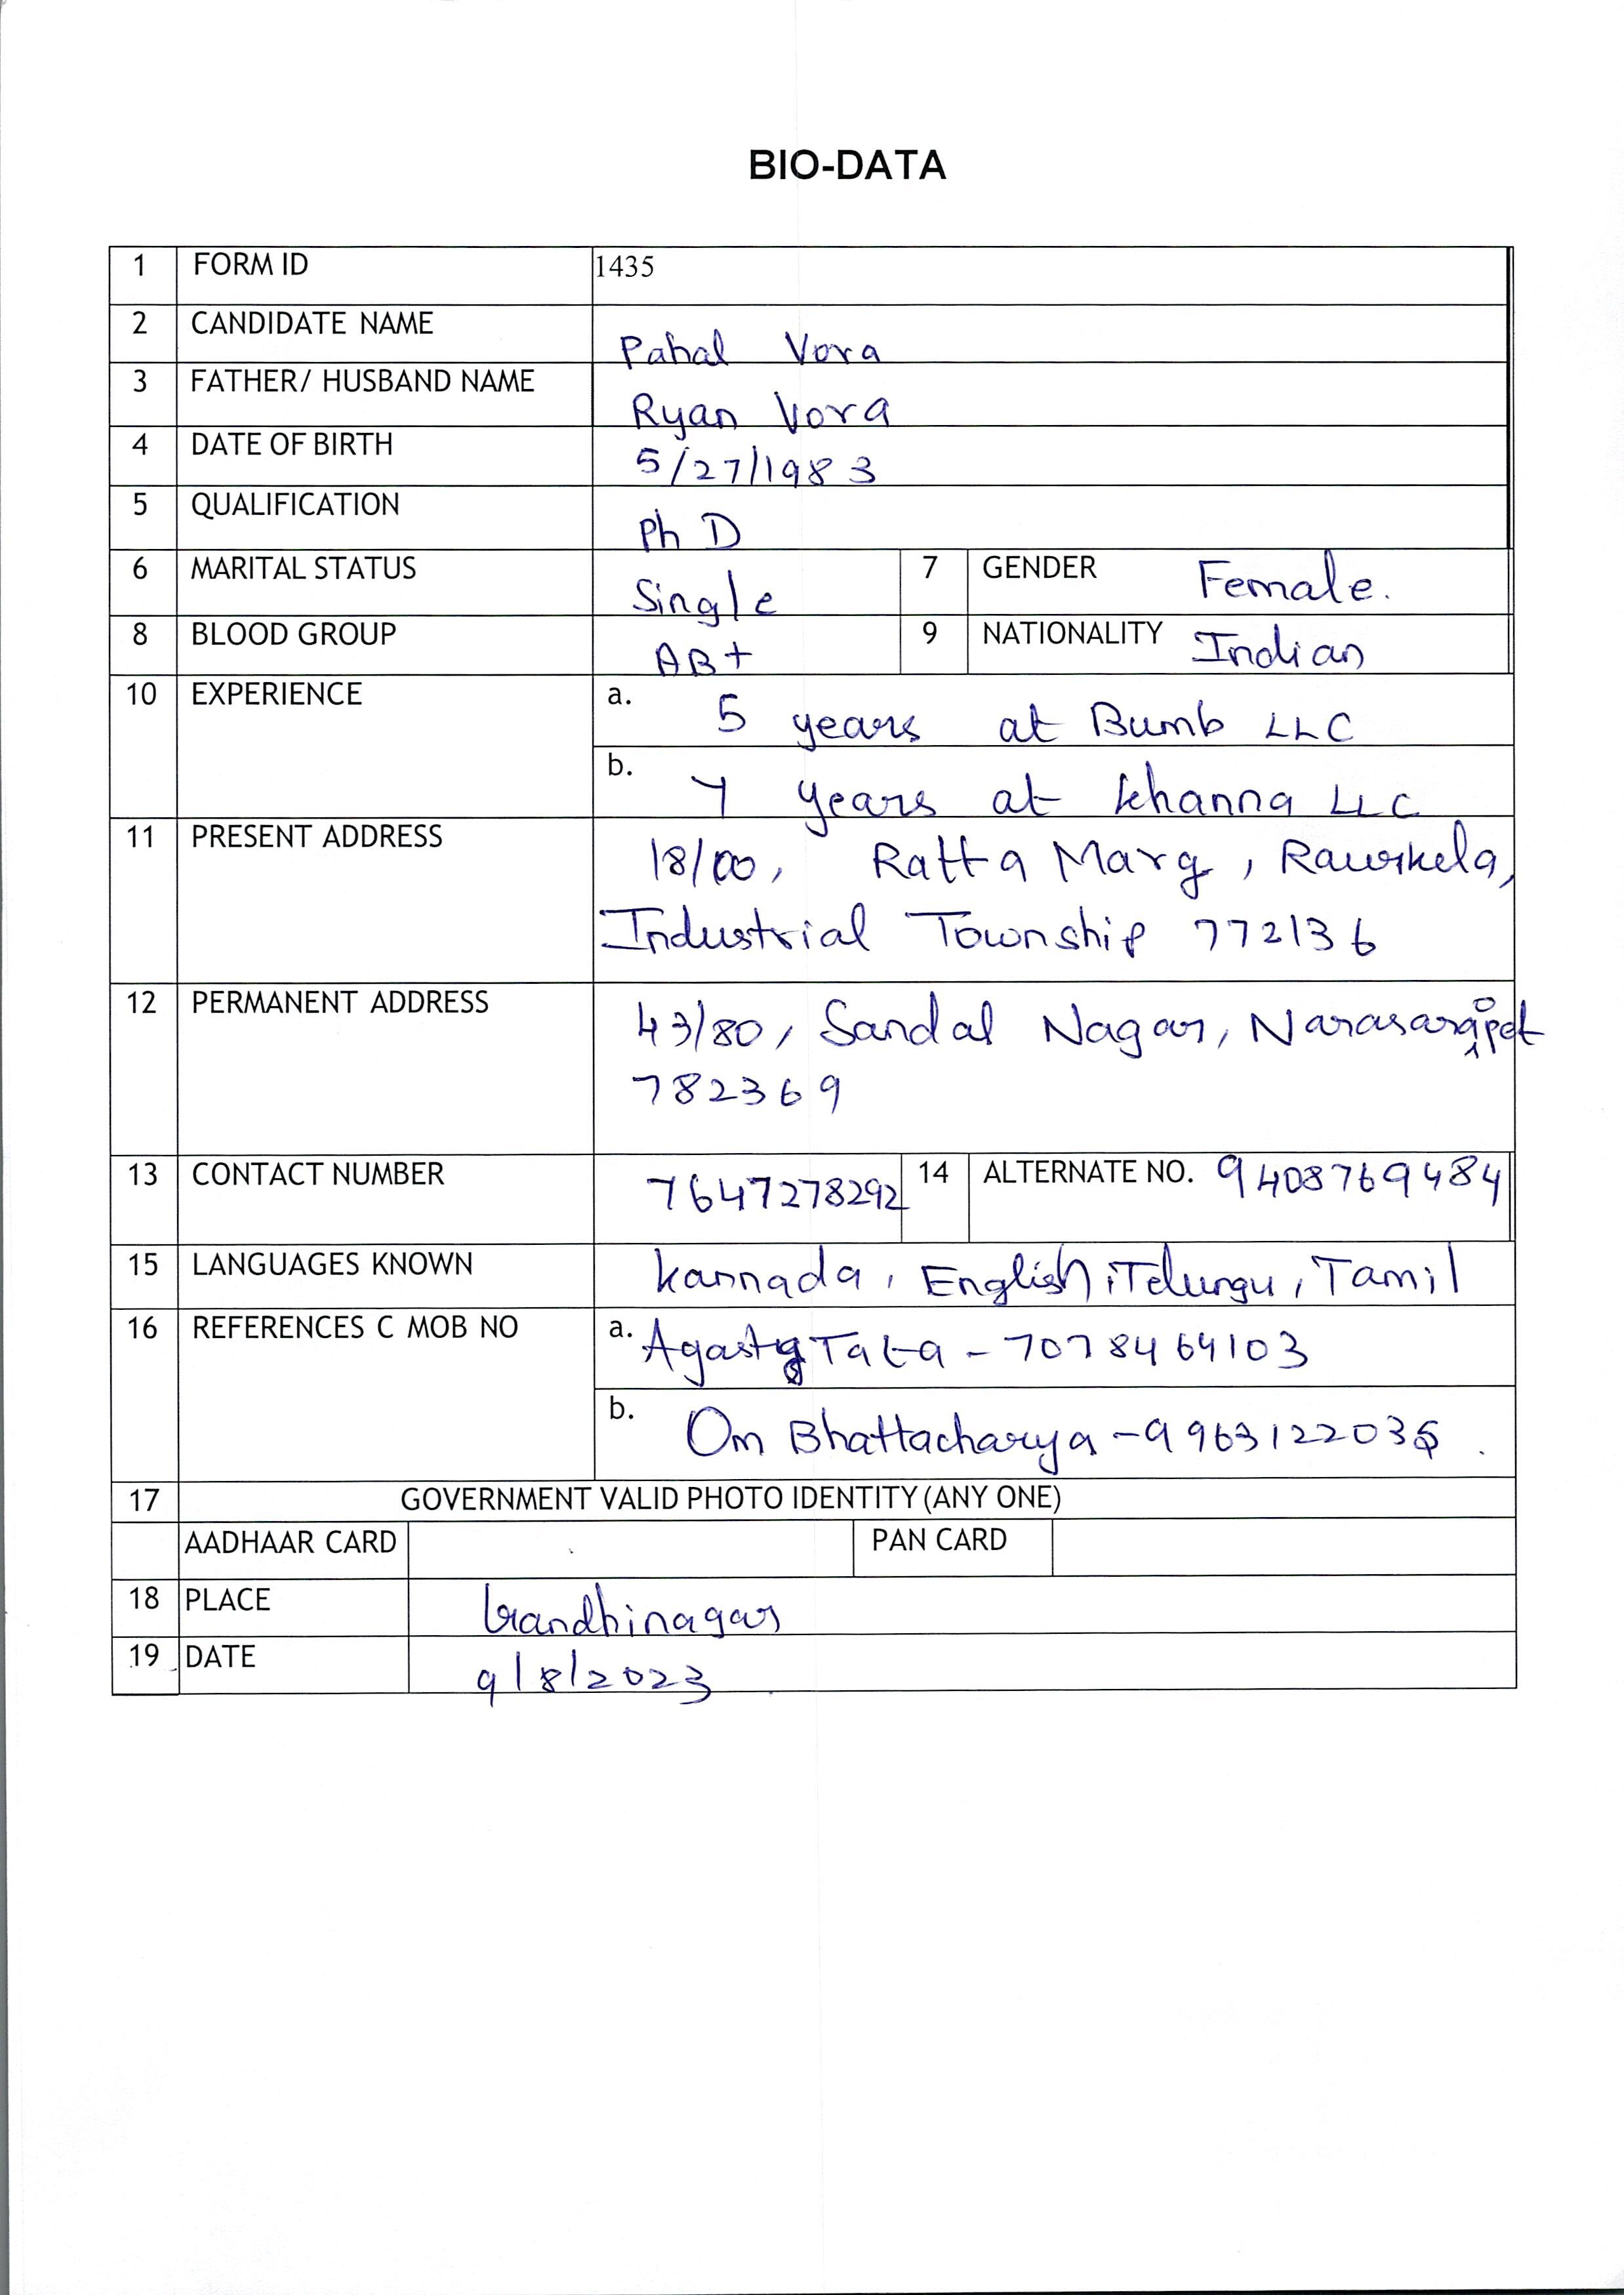 BIO-DATA
1 FORM ID 1435
2 CANDIDATE NAME Pahal Vora
3 FATHER/ HUSBAND NAME Ryan Vora
4 DATE OF BIRTH 5/27/1983
5 QUALIFICATION Ph D
6 MARITAL STATUS Single 7 GENDER Female.
8 BLOOD GROUP AB+ 9 NATIONALITY Indian
10 EXPERIENCE a. 5 years at Bumb LLC
b. 7 years at Khanna LLC
11 PRESENT ADDRESS 18/00, Ratta Marg, Raurkela,
Industrial Township 772136
12 PERMANENT ADDRESS 43/80, Sandal Nagar,
782369
13 CONTACT NUMBER 7647278292 14 ALTERNATE NO. 9408769484
15 LANGUAGES KNOWN Kannada, English, Telungu, Tamil
16 REFERENCES C MOB NO a. Agastya Tata - 7078464103
b. Om Bhattacharya -
17 GOVERNMENT VALID PHOTO IDENTITY (ANY ONE)
AADHAAR CARD PAN CARD
18 PLACE Gandhinagar
19 DATE 9/8/2023